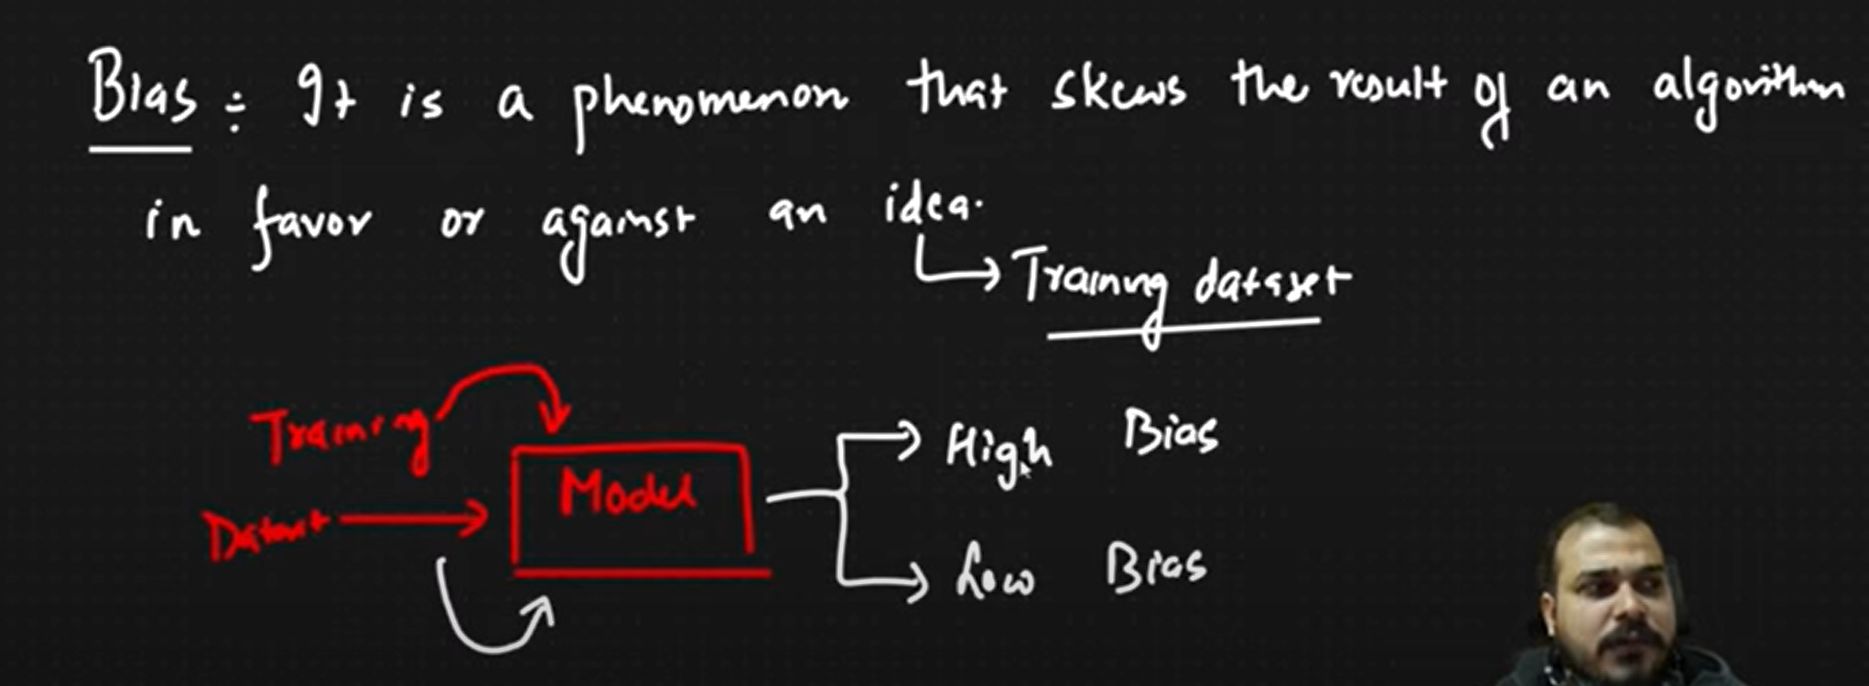 Bias : It is a phenomenon that skews the result of an algorithm
in favor or against an idea.
Training dataset
Training
Dataset
Model
High Bias
Low Bias